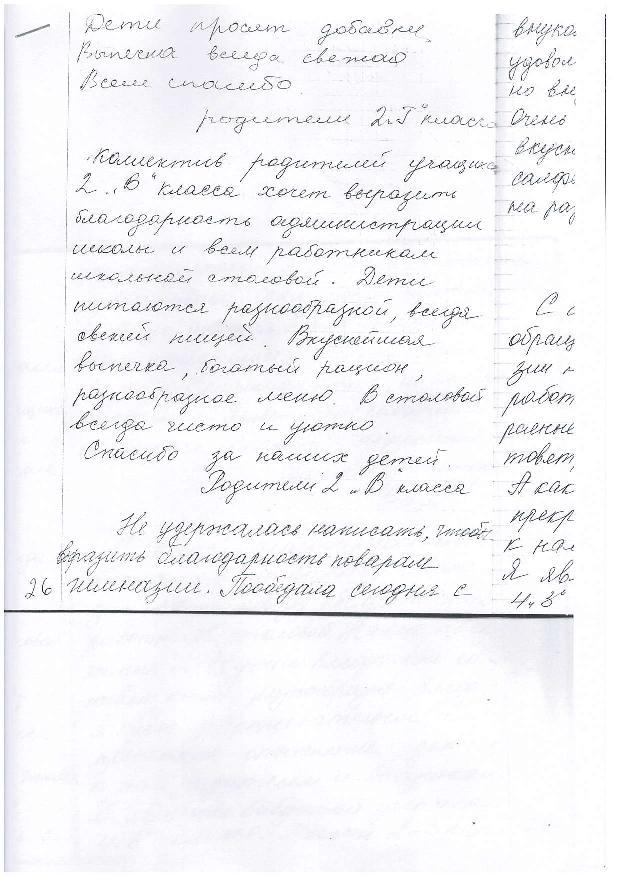 Дети просят добавки.
Выпечка всегда свежая
Всем спасибо.
родители 2 „Г" класса
Коллектив родителей учащихся
2 „В" класса хочет выразить
благодарность администрации
школы и всем работникам
школьной столовой. Дети
питаются разнообразной, всегда
свежей пищей. Вкуснейшая
выпечка, богатый рацион,
разнообразное меню. В столовой
всегда чисто и уютно.
Спасибо за наших детей.
Родители 2 „В" класса
Не удержалась написать, чтобы
выразить благодарность поварам
гимназии. Пообедала сегодня с
26
внука
удовол
но вку
Очень
вкусн
салф
на раз
С
обращ
зии
работ
товят,
А как
прекр
к на
Я яв
4 „З"